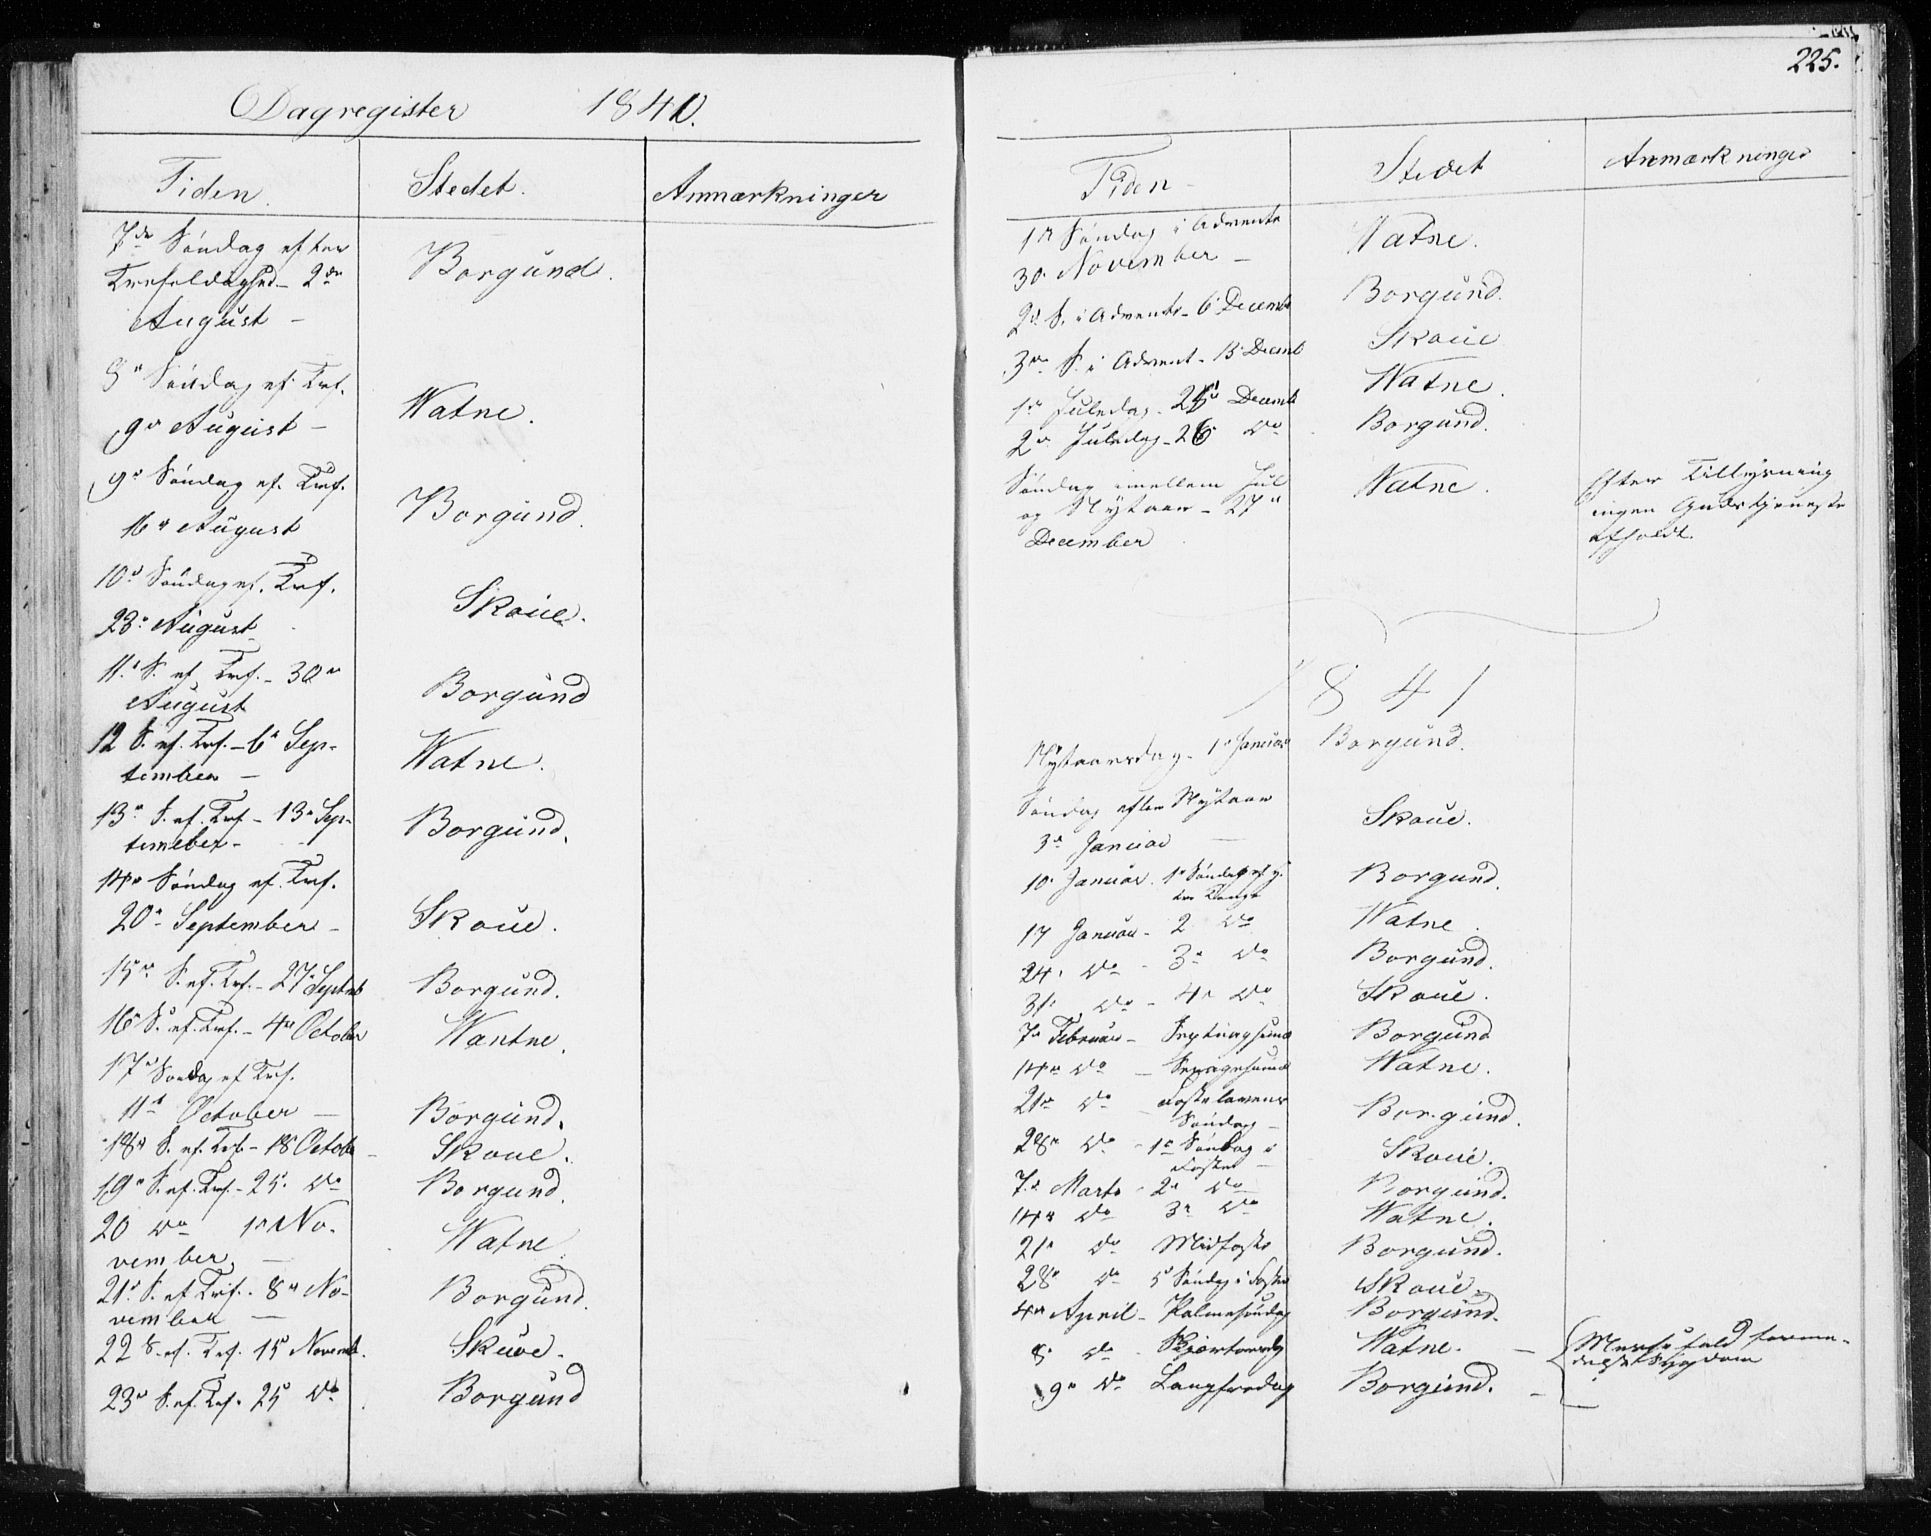 Dagregister 1840.
Tiden. Stedet. Anmærkninger
7de Søndag efter
Trefoldighed - 2den Borgund.
August -
8de Søndag ef. Tref.
9de August - Watne.
9de Søndag ef. Tref.
16de August Borgund.
10de Søndag ef. Tref.
23de August Skoue.
11te S. ef. Tref. - 30te
August Borgund
12 S. ef. Tref. - 6te Sep-
tember - Watne.
13de S. ef. Tref. - 13de Sep-
temeber - Borgund.
14de Søndag ef. Tref.
20de September - Skoue.
15de S. ef. Tref. - 27de Septemb Borgund.
16de S. ef. Tref. - 4de October Wantne.
17de Søndag ef Tref.
11te October - Borgund.
18de S. ef. Tref. - 18 Octobe Skoue.
19de S. ef. Tref. - 25. do Borgund.
20 do 1ste No-
vember - Watne
21de S. ef Tref. - 8de No-
vember - Borgund.
22 S. ef. Tref. 15 Novemb. Skuoe.
23de S. ef. Tref. 25 do Borgund
225.
Tiden - Stedet Anmærkninger
1ste Søndag i Advents
30. November - Watne.
2den S. i Advents - 6te Decemb Borgund.
3die S. i Advent - 13 Decemb Skoue
1ste Juledag - 25 Decemb Watne.
2den Juledag - 26 do Borgund.
Søndag imellem Jul
og Nytaar - 27de Watne.
December
Efter Tillysning
ingen Gudstjeneste
afholdt.
1841
Nytaarsdag - 1ste Januar Borgund.
Søndag efter Nytaar
3die Januar - Skoue.
10. Januar. 1ste Søndag ef H. Borgund.
tre Konge
17 Januar - 2 do Watne.
24. do - 3die do Borgund.
31te do - 4de do Skoue.
7de Februar - Septuagesima Borgund
14de do - Sexagesima Watne.
21de do - Fastelavens
Søndag - Borgund.
28de do - 1ste Søndag i
Fasten - Skoue.
7de Marts - 2den do Borgund.
14de do 3die do Watne.
21de do Midfaste Borgund.
28de do 5te Søndag i Faste Skoue.
4de April - Palmesøndag Borgund.
8. do - Skjærtorsdg Watne. -
9de do - Langfredag Borgund. -
Messefald forme-
delst Sygdom